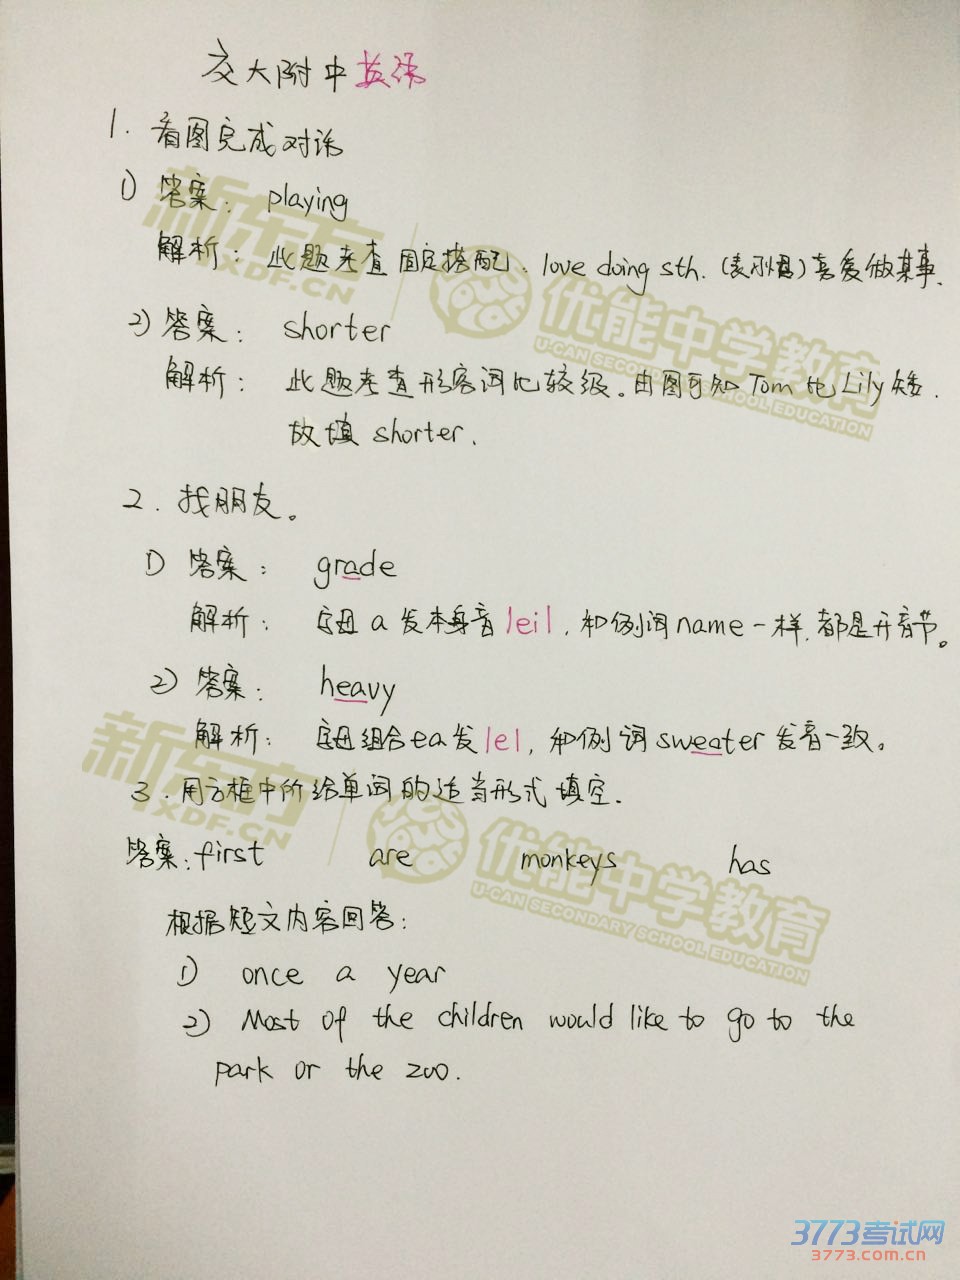 交大附中英语
1. 看图完成对话
1) 答案: playing
解析: 此题考查固定搭配. love doing sth. (表示喜) 喜爱做某事.
2) 答案: shorter
解析: 此题考查形容词比较级。由图可知Tom比Lily矮.
故填 shorter.
2. 找朋友。
1) 答案: grade
解析: 字母 a 发本身音 |ei|, 和例词 name 一样, 都是开音节。
2) 答案: heavy
解析: 字母组合 ea 发 |e|, 和例词 sweater 发音一致。
3. 用方框中所给单词的适当形式填空.
答案: first are monkeys has
根据短文内容回答:
1) once a year
2) Most of the children would like to go to the
park or the zoo.
新东方
XDF.CN
优能中学教育
U-CAN SECONDARY SCHOOL EDUCATION
新东方
XDF.CN
优能中学教育
U-CAN SECONDARY SCHOOL EDUCATION
3773考试网
3773.com.cn